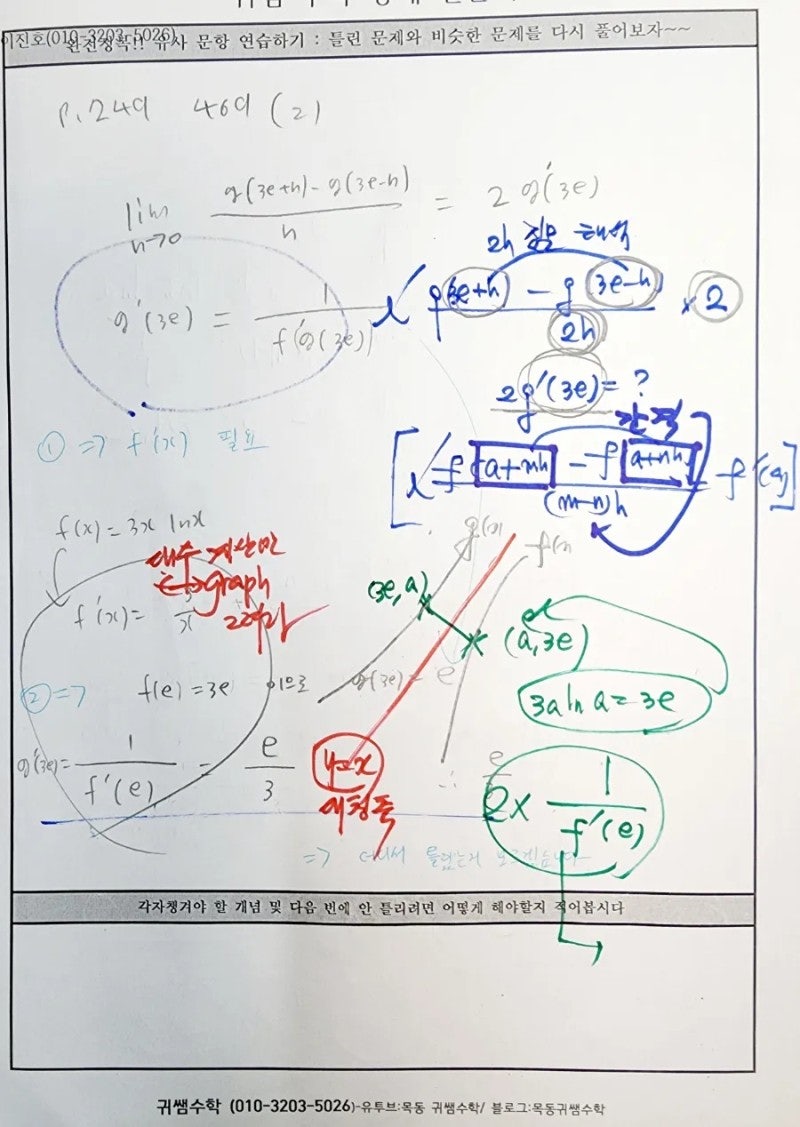 이진호(010-3203-5026)
완전정복!! 유사 문항 연습하기 : 틀린 문제와 비슷한 문제를 다시 풀어보자~~
P.249 469 (2)
lim h→0 g(3e+h)-g(3e-h) / h = 2g'(3e)
g'(3e) = 1 / f'(g(3e))
2h
g(3e+h) - g(3e-h) / 2h × 2
2g'(3e) = ?
간격
f(a+mh) - f(a+nh) / (m-n)h = f'(a)
① => f'(x) 필요
f(x) = 3x lnx
graph
f'(x) = 3/x
g(x) f(x)
(3e, a)
(a, 3e)
② => f(e) = 3e 이므로 g(3e) = e
3a ln a = 3e
g'(3e) = 1 / f'(e) = e / 3
y=x
대칭
∴ e
2× 1 / f'(e)
=> 어디서 틀렸는지 모르겠습니다
각자챙겨야 할 개념 및 다음 번에 안 틀리려면 어떻게 해야할지 적어봅시다
귀쌤수학 (010-3203-5026)-유투브:목동 귀쌤수학/ 블로그:목동귀쌤수학